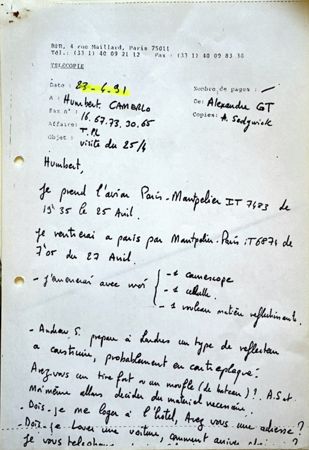 BDM, 4 rue Maillard, Paris 75011
Tél.: (33 1) 40 09 21 12 Fax : (33 1) 40 09 83 38
TELECOPIE
Date : 23-4-91
Nombre de pages : 1
A : Humbert CAMERLO
De: Alexandre GT
Fax n° : 16.67.73.30.65
Copies: A. Sedgwick
Affaire: T.PL
Objet : visite du 25/4
Humbert,
Je prend l'avion Paris-Montpelier IT 7483 de
19h35 le 25 Avril.
Je rentrerai a paris par Montpelier-Paris IT6874 de
7h05 du 27 Avril.
- J'amenerai avec moi
- 1 camescope
- 1 cellule
- 1 rouleau matière reflechissante.
- Andrew S. prepare a Londres un type de reflecteur
a construire, probablement en contreplaqué.
Avez vous un tire fort ou moufle (de bateau)? A.S et
Moi même allons decider du materiel necessaire.
- Dois-je me loger à l'hotel, Avez vous une adresse?
- Dois-je Louer une voiture, comment
Je vous